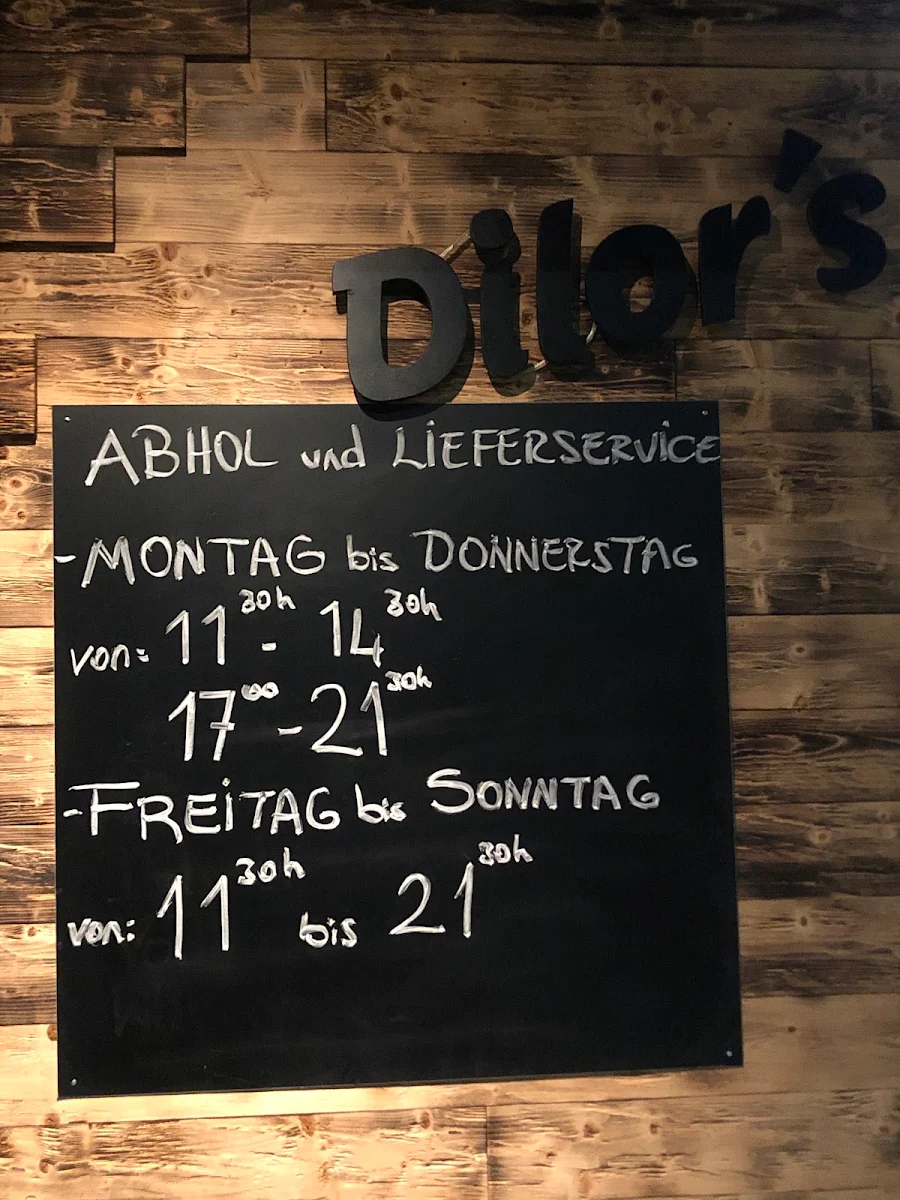 Dilor's
ABHOL und LIEFERSERVICE
-MONTAG bis DONNERSTAG
von: 11 30h - 14 30h
17 00 - 21 30h
-FREITAG bis SONNTAG
von: 11 30h bis 21 30h